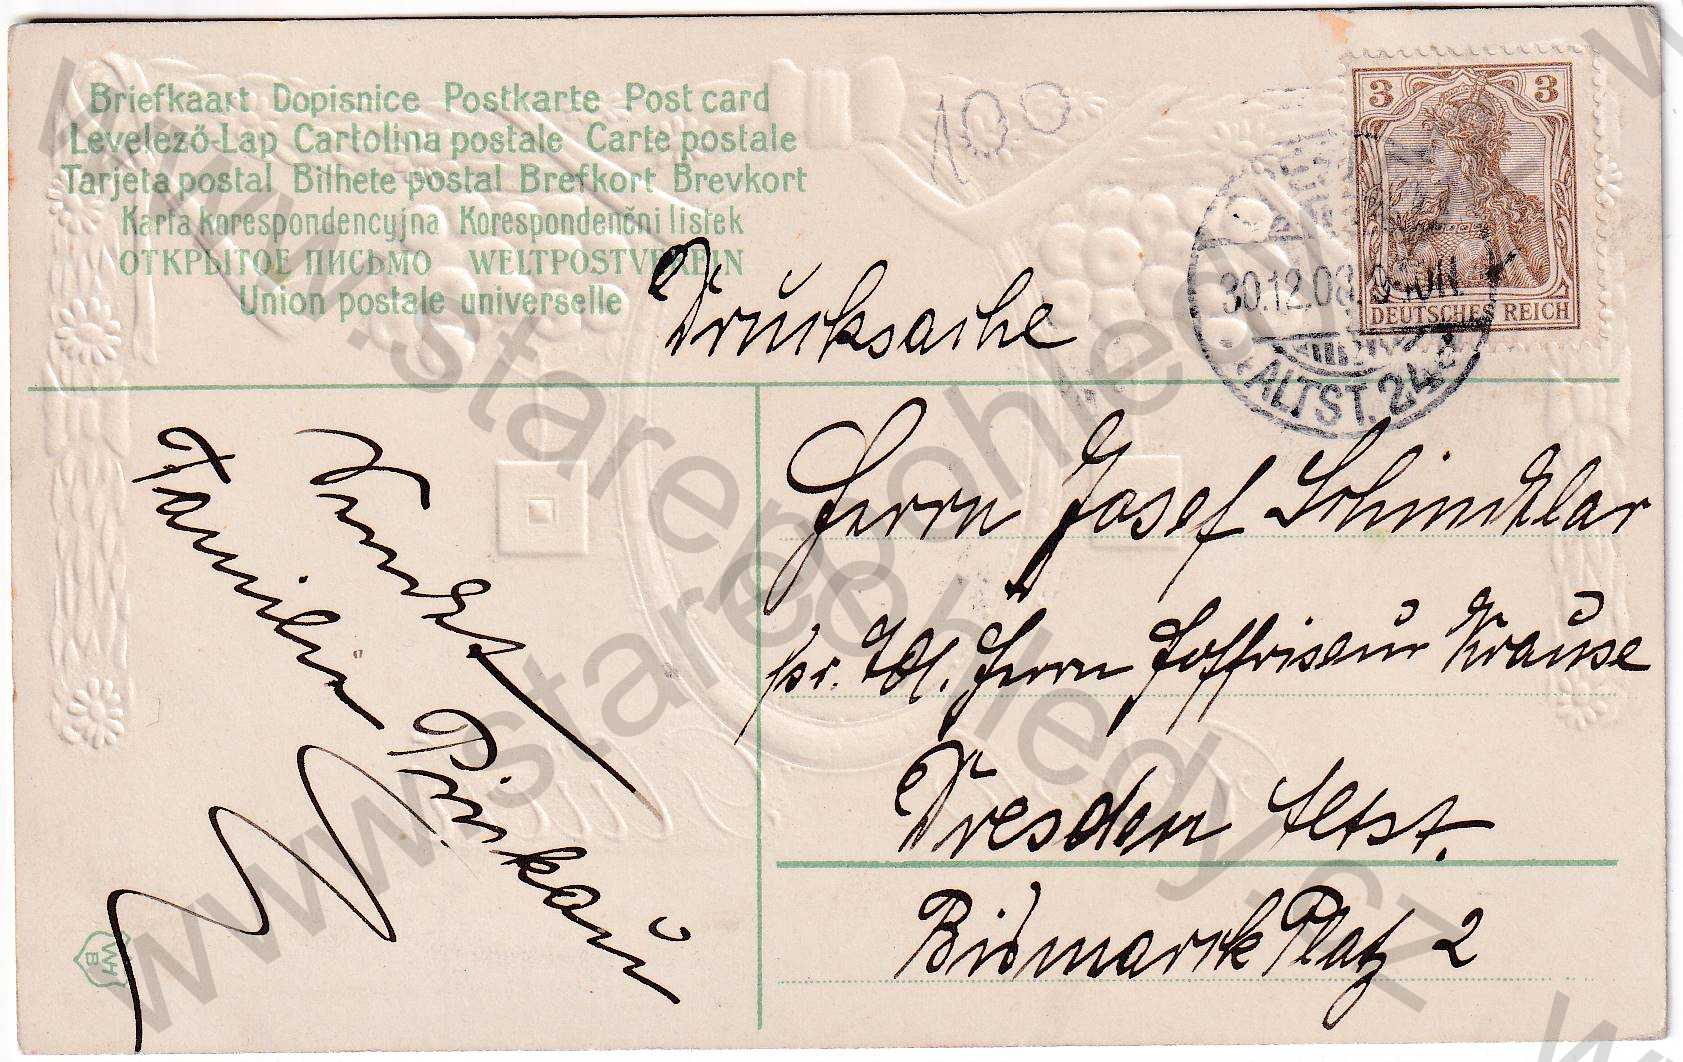 Briefkaart Dopisnice Postkarte Post card
Levelező-Lap Cartolina postale Carte postale
Tarjeta postal Bilhete postal Brefkort Brevkort
Karta korespondencyjna Korespondenčni listek
ОТКРЫТОЕ ПИСЬМО WELTPOSTVEREIN
Union postale universelle
100
3 3
DEUTSCHES REICH
30.12.08. 9-10N.
ALTST. 24
Drucksache
Familie Pinkau
Herrn Josef Schindlar
pr. Adr. Herrn Hoffriseur Krause
Dresden Altst.
Bismarck Platz 2
WH
B
www.starepohledy.cz
www.starepohledy.cz